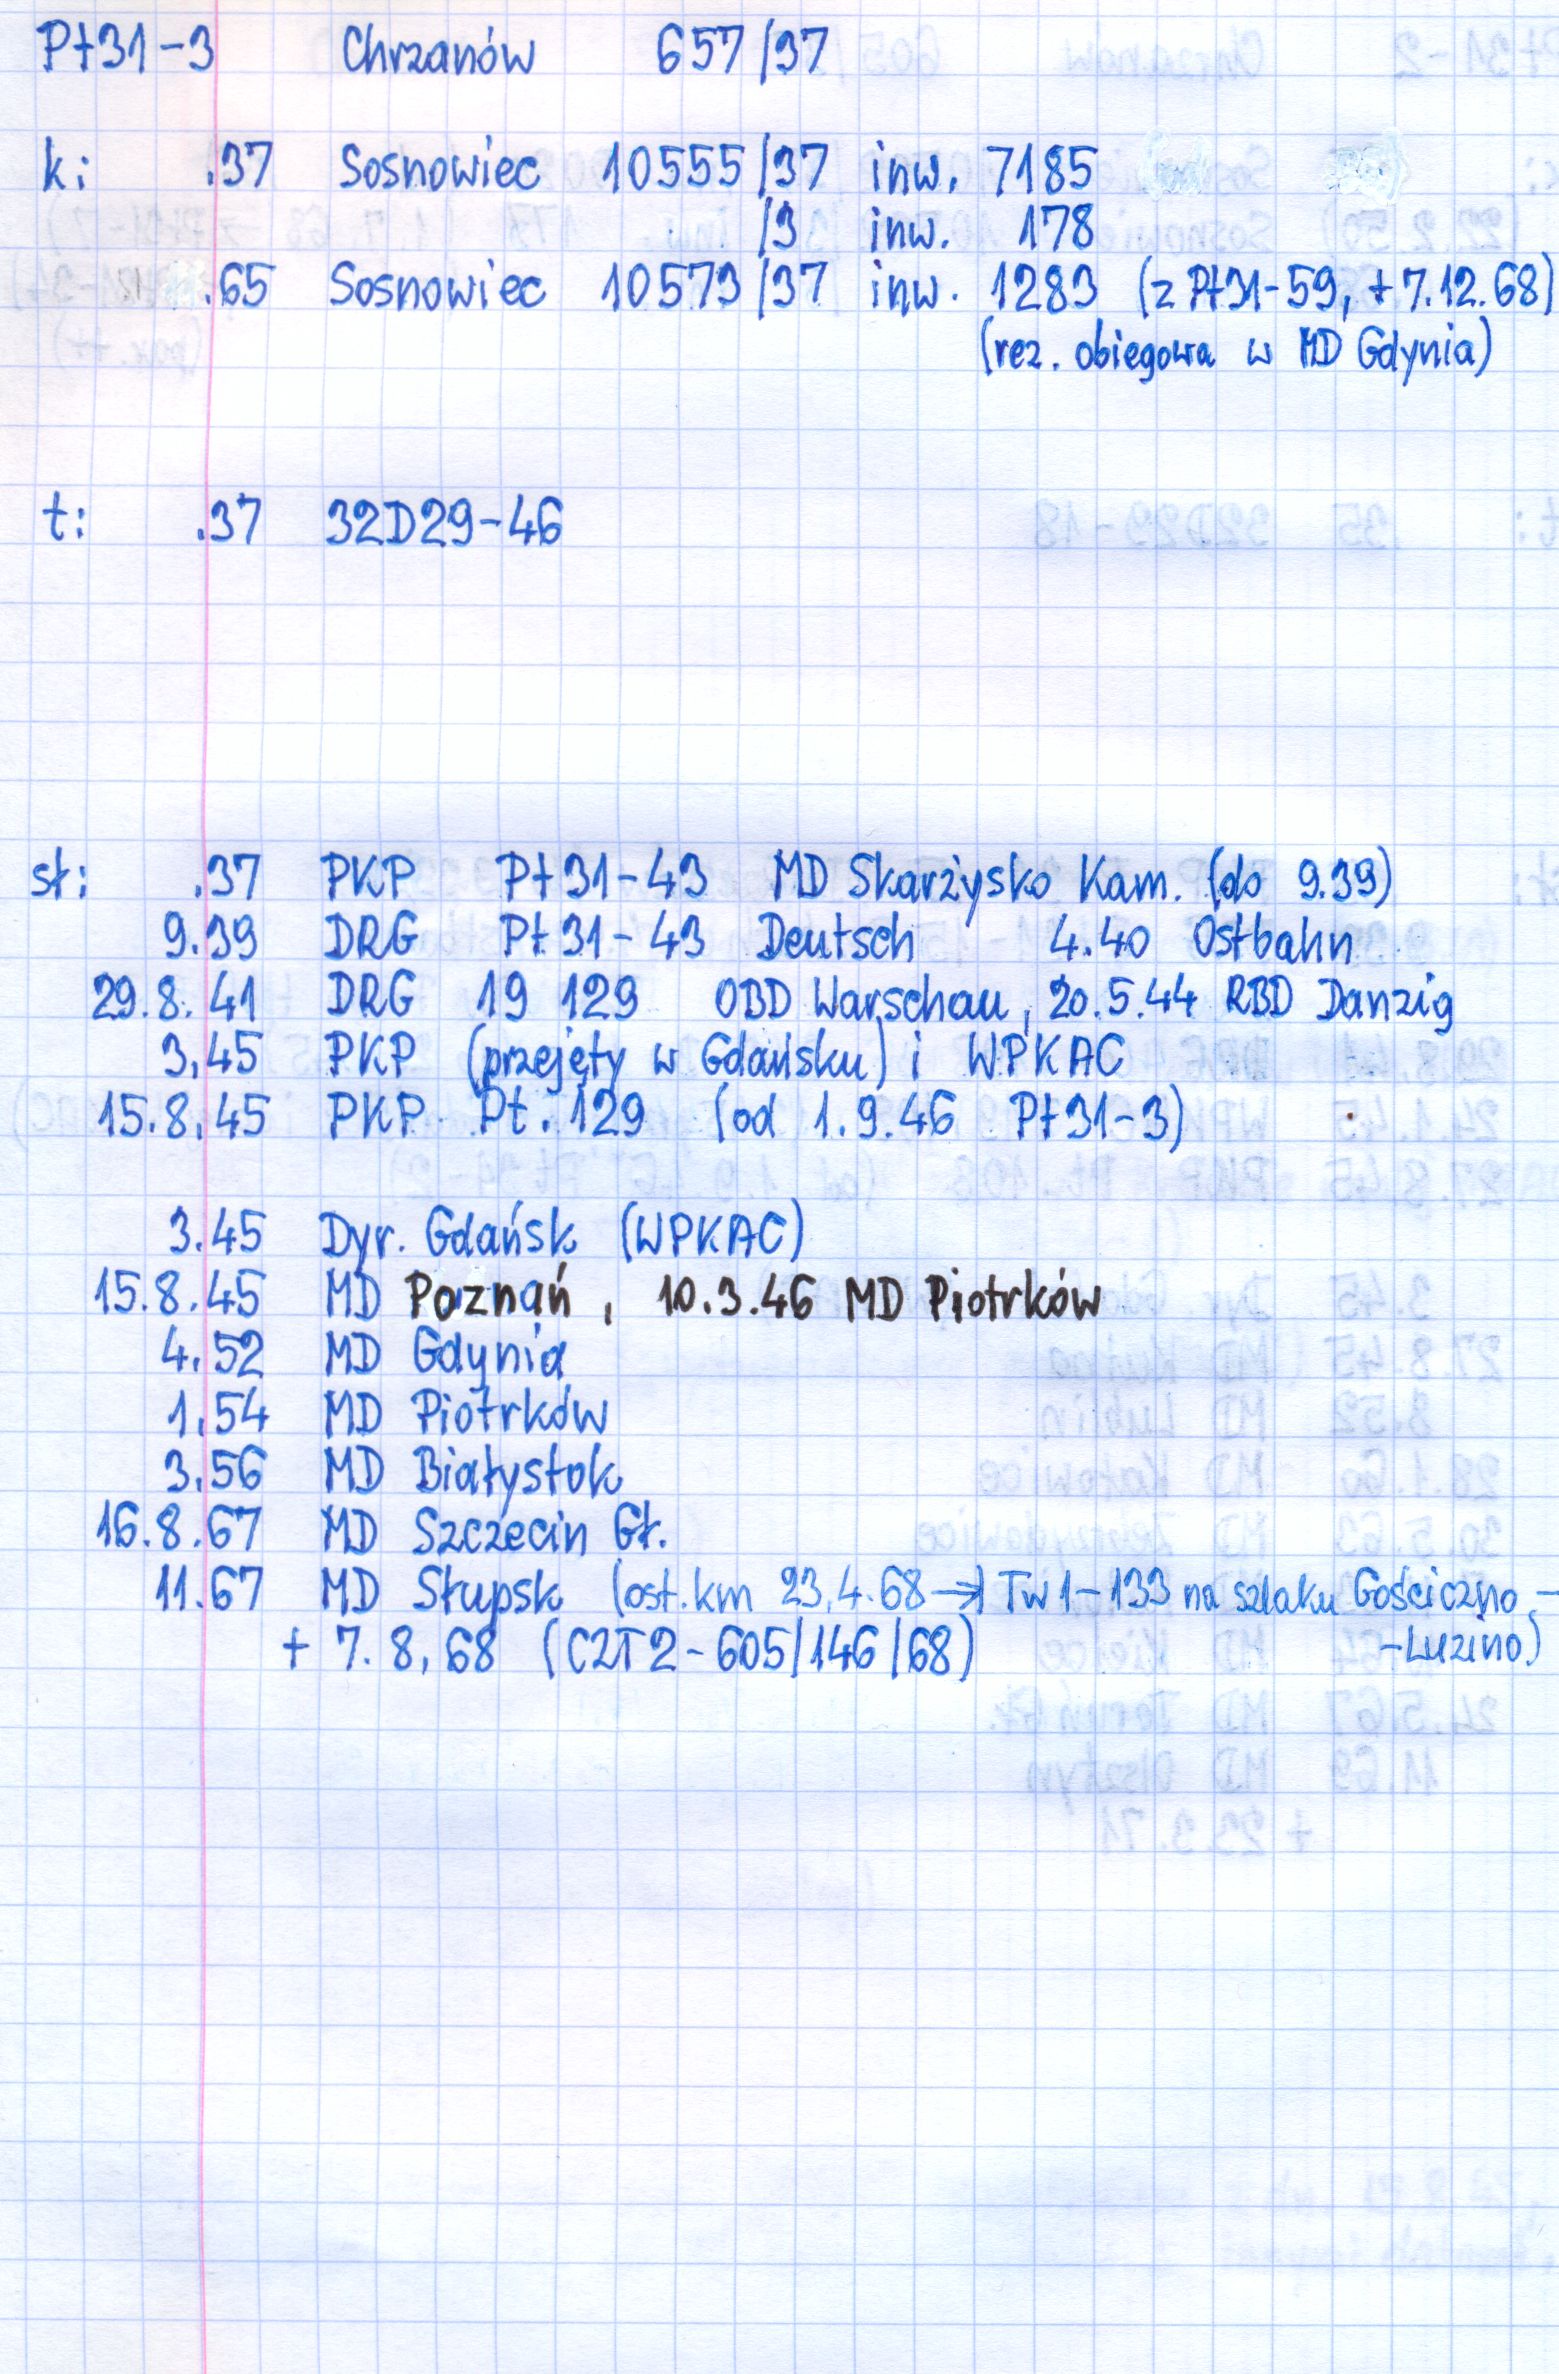 Pt31-3 Chrzanów 657/37
k: .37 Sosnowiec 10555/37 inw. 7185
/3 inw. 178
.65 Sosnowiec 10573/37 inw. 1283 (z Pt31-59, +7.12.68)
(rez. obiegowa w MD Gdynia)
t: .37 32D29-46
st: .37 PKP Pt31-43 MD Skarżysko Kam. (do 9.39)
9.39 DRG Pt31-43 Deutsch 4.40 Ostbahn
29.8.41 DRG 19 129 OBD Warschau, 20.5.44 RBD Danzig
3.45 PKP (przejęty w Gdańsku) i WPKAC
15.8.45 PKP Pt.129 (od 1.9.46 Pt31-3)
3.45 Dyr. Gdańsk (WPKAC)
15.8.45 MD Poznań, 10.3.46 MD Piotrków
4.52 MD Gdynia
1.54 MD Piotrków
3.56 MD Białystok
16.8.67 MD Szczecin Gł.
11.67 MD Słupsk (ost. km 23.4.68 → Tw1-133 na szlaku Gościczno -
+ 7.8.68 (CZT2-605/146/68) -Luzino)